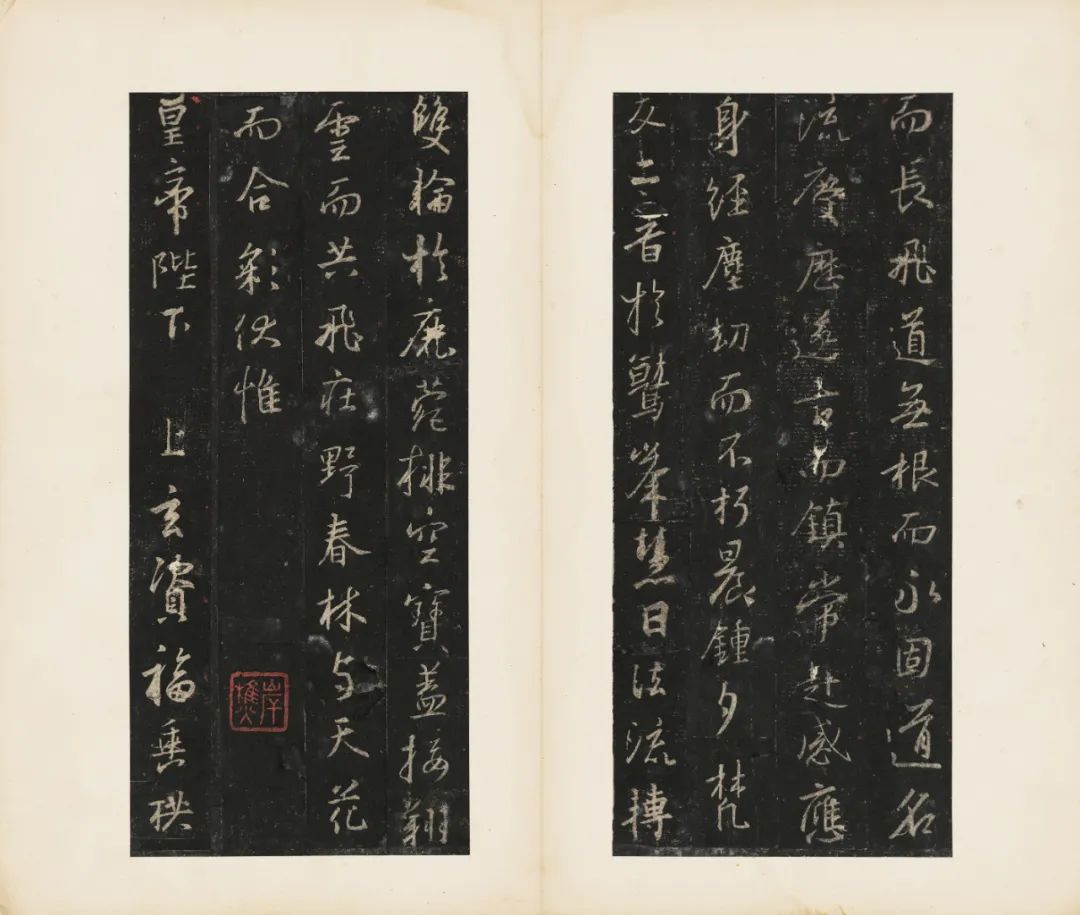 而長飛道無根而永固道名
流慶歷遂古而鎮常赴感應
身經塵劫而不朽晨鍾夕梵
交二音於鷲峯慧日法流轉
雙輪於鹿菀排空寶盖接翔
雲而共飛莊野春林与天花
而合彩伏惟
皇帝陛下 上玄資福垂拱